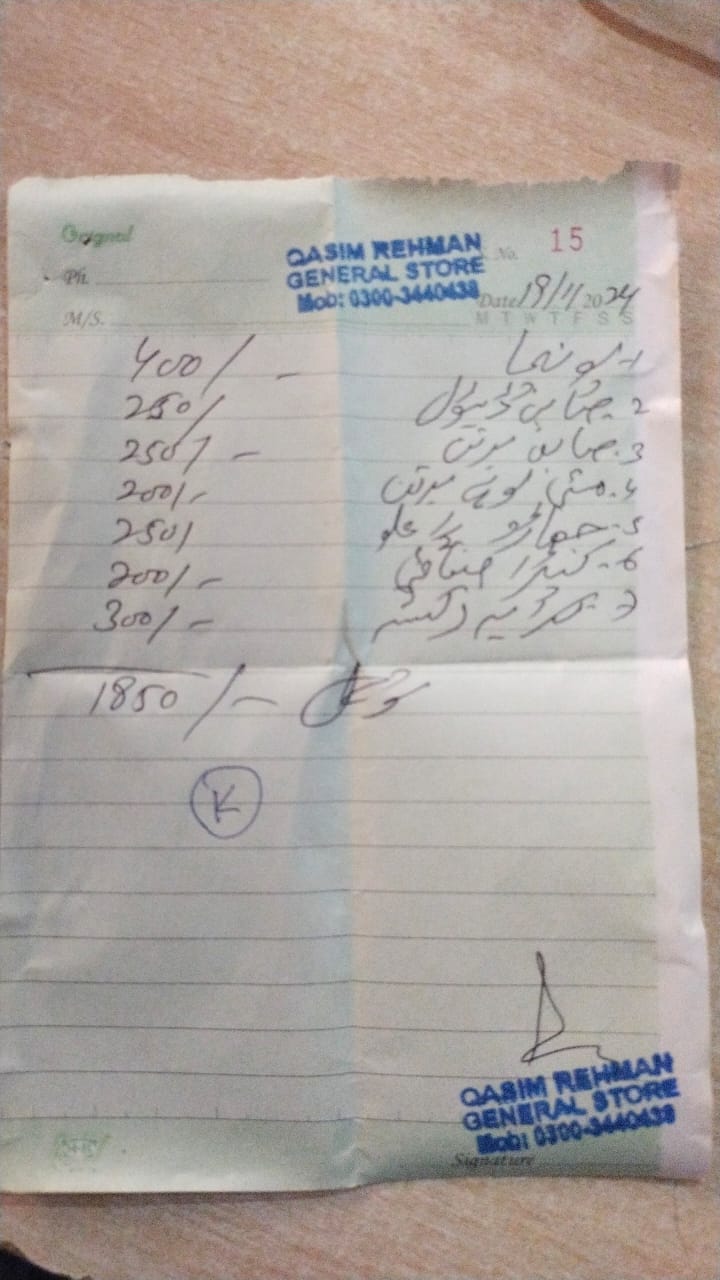 Original
QASIM REHMAN
GENERAL STORE
Mob: 0300-3440438
No. 15
Ph.
Date 19/11/2024
M/S.
M T W T F S S
1- 400/-
2- صابن 250/
3- صابن برتن 250/-
4- برتن 200/-
5- جھاڑو 250/
6- کپڑا صفائی 200/-
7- کرایہ رکشہ 300/-
ٹوٹل 1850/-
K
QASIM REHMAN
GENERAL STORE
Mob: 0300-3440438
Signature